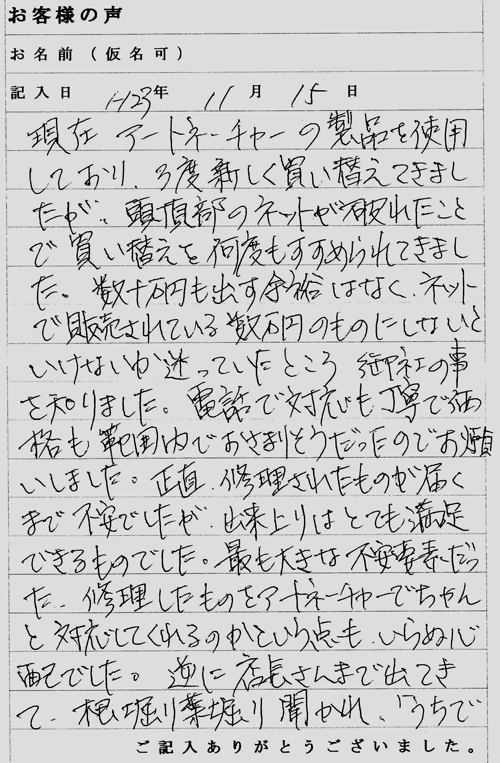 お客様の声
お名前（仮名可）
記入日 H23年 11月 15日
現在 アートネーチャーの製品を使用
しており、3度新しく買い替えてきまし
たが、頭頂部のネットが破れたこと
で買い替えを何度もすすめられてきまし
た。数十万円も出す余裕はなく、ネット
で販売されている数万円のものにしないと
いけないか迷っていたところ 御社の事
を知りました。電話で対応も丁寧で価
格も範囲内でおさまりそうだったのでお願
いしました。正直、修理されたものが届く
まで不安でしたが、出来上りはとても満足
できるものでした。最も大きな不安要素だっ
た、修理したものをアートネーチャーでちゃん
と対応してくれるのかという点も、いらぬ心
配でした。逆に店長さんまで出てき
て、根堀り葉堀り聞かれ、「うちで
ご記入ありがとうございました。